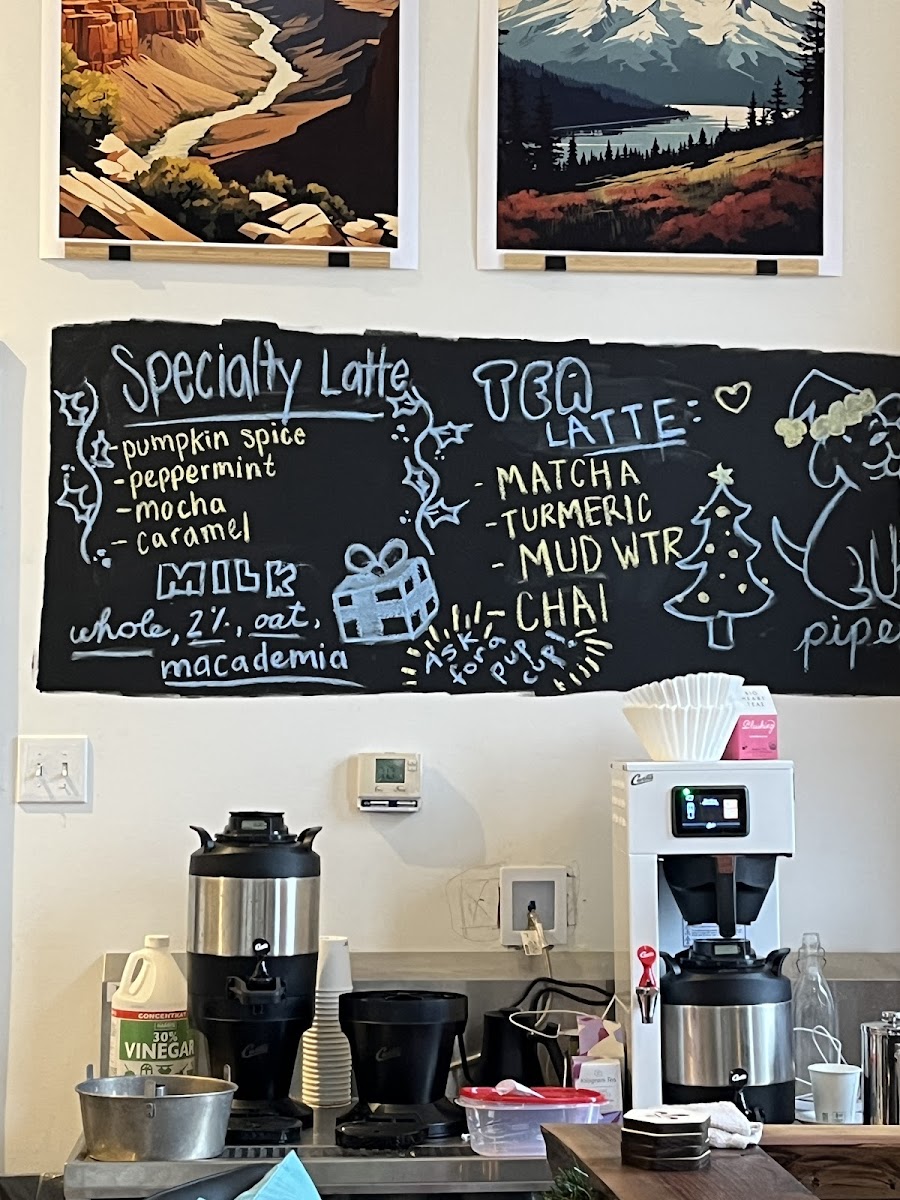 Specialty Latte
-pumpkin spice
-peppermint
-mocha
-caramel
MILK
whole, 2%, oat,
macademia
TEA
LATTE:
- MATCHA
-TURMERIC
- MUD WTR
- CHAI
Ask
for a
pup
cup!
pipe
Curtis
Blushing
CONCENTRAT
30%
VINEGAR
Curtis
Curtis